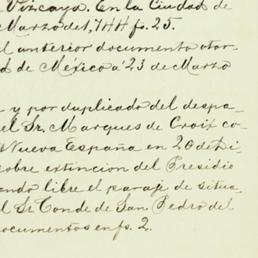 Vizcaya. En la Ciudad de
Marzo de 1,144 fs. 25.
el anterior documento otor
d de México a 23 de Marzo
y por duplicado del despa
el Sr. Marques de Croix co
Nueva España en 20 de Di
sobre extincion del Presidio
ando libre el paraje de situa
el Sr Conde de San Pedro del
documentos en fs. 2.